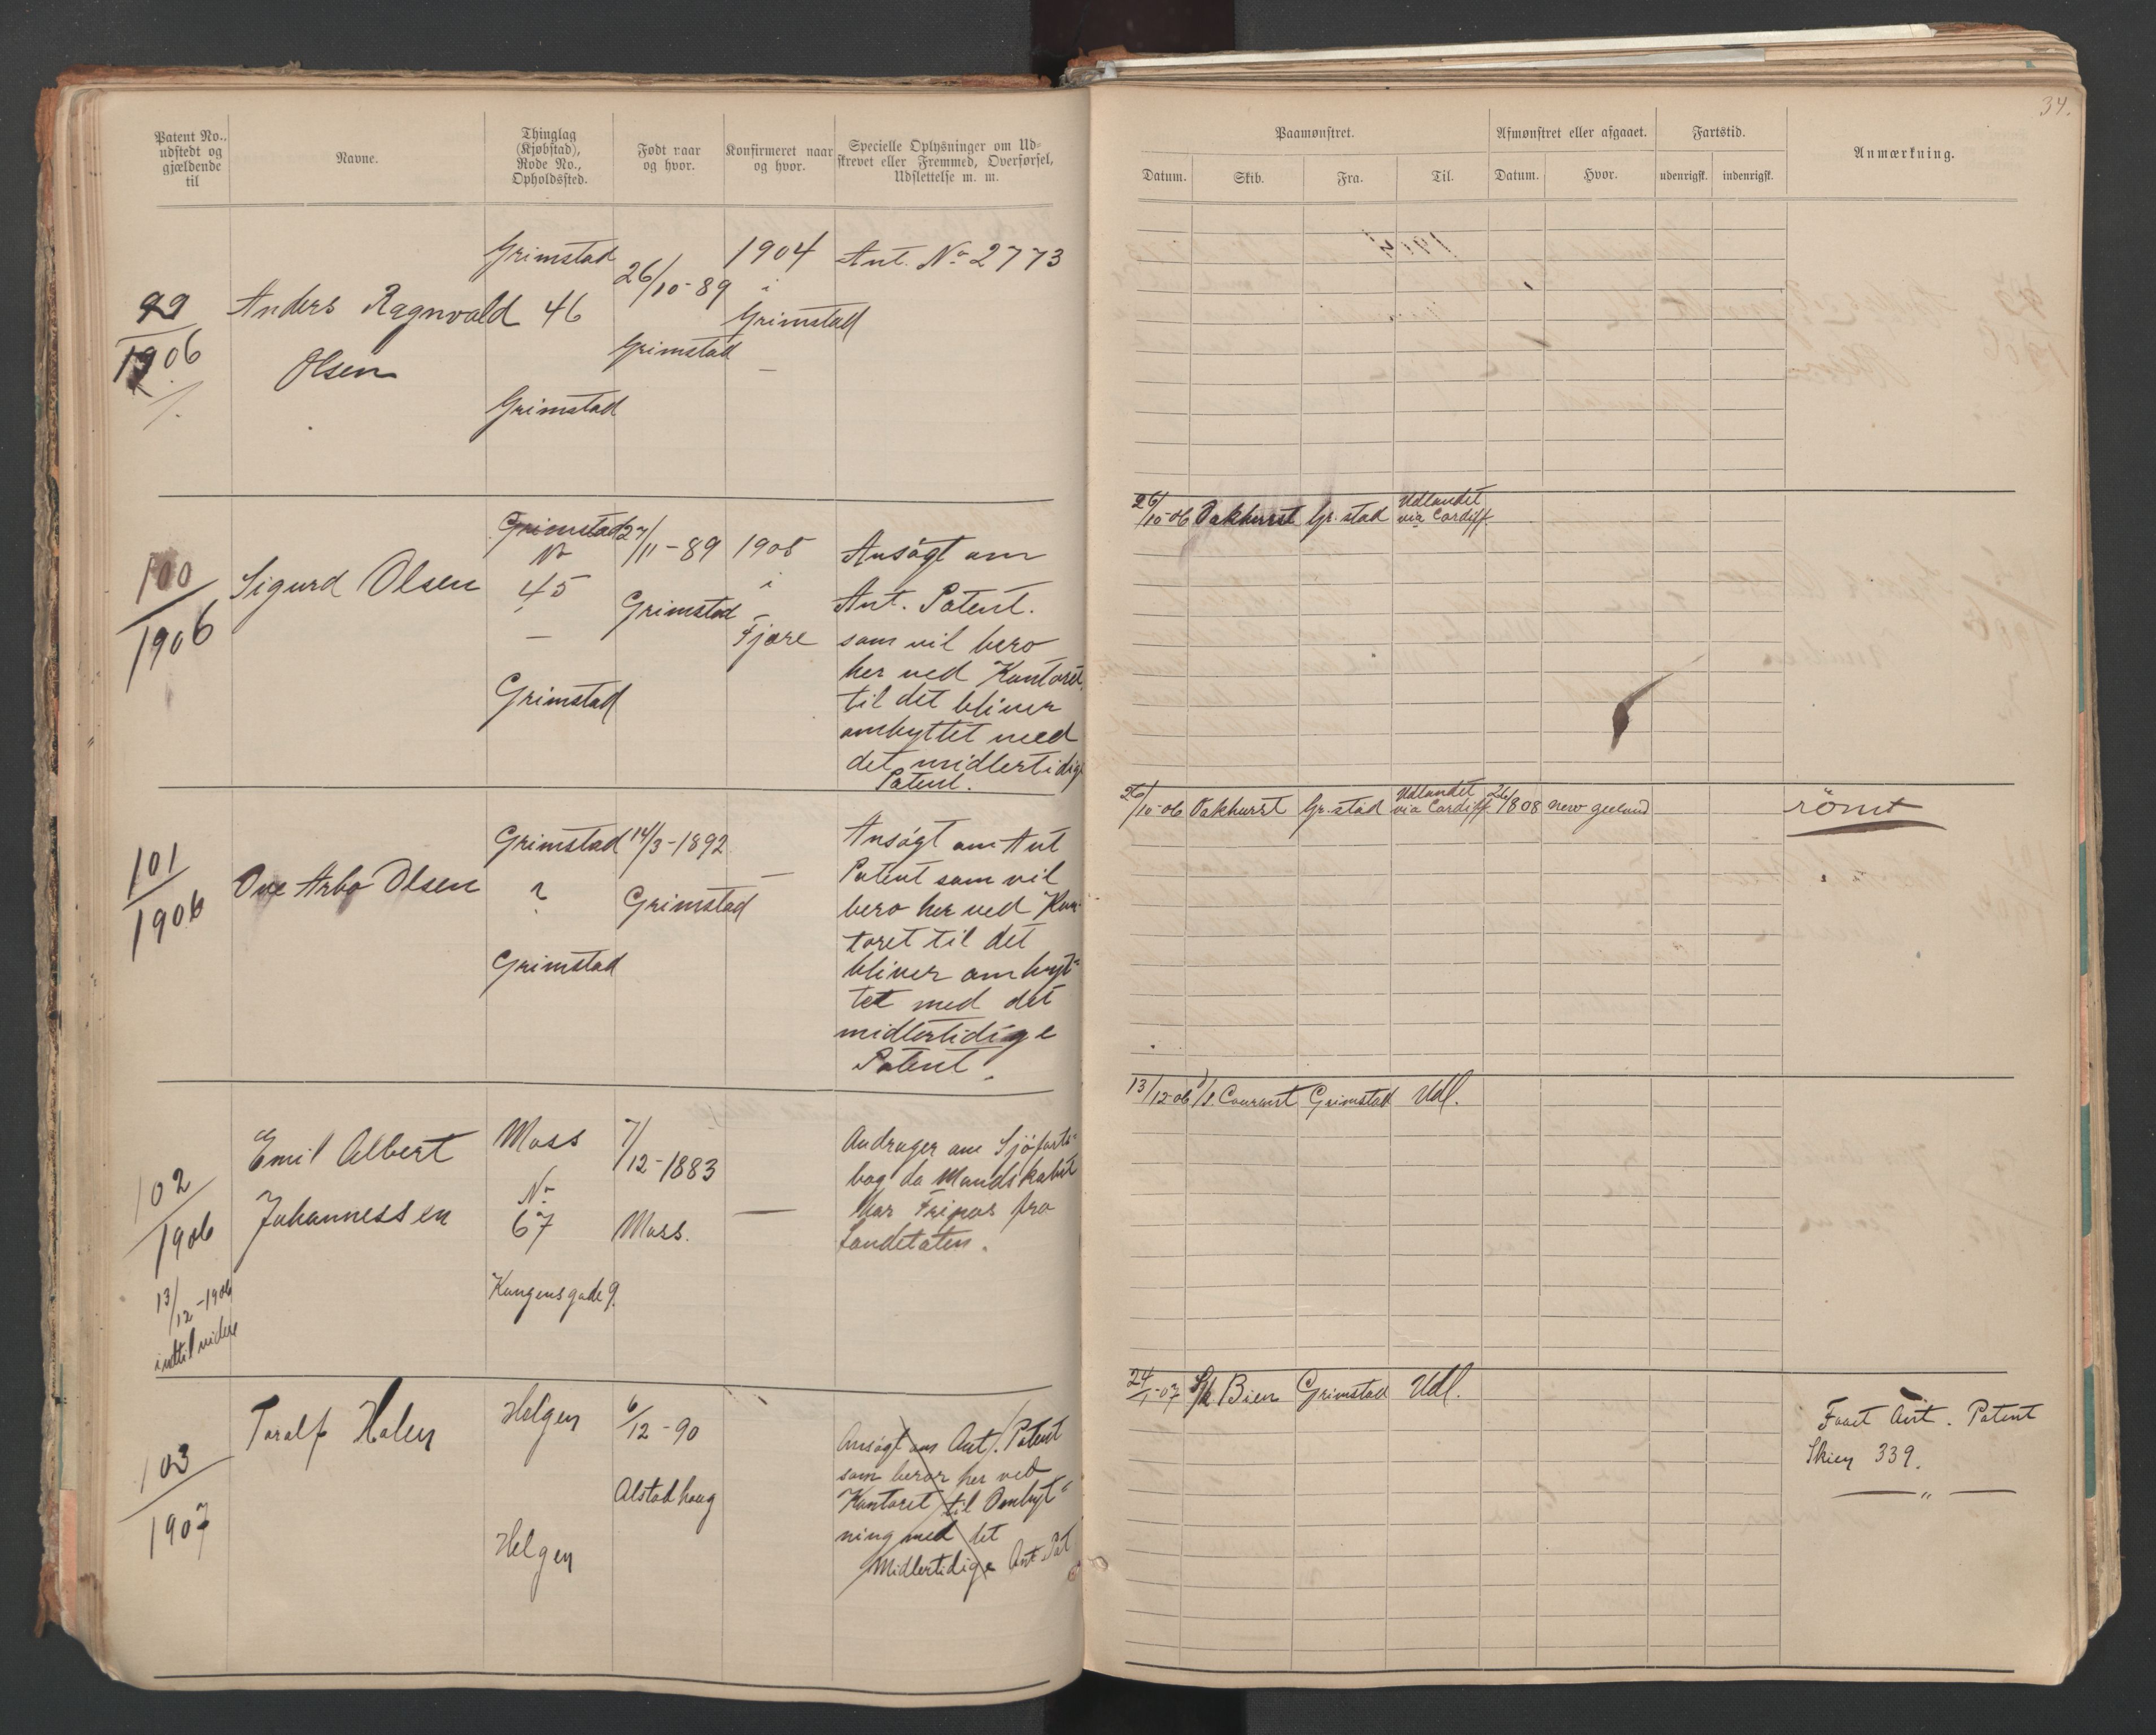 Patent No.,
udstedt og
gjældende
til
Navne.
Thinglag
(Kjøbstad),
Rode No.,
Opholdssted.
Født naar
og hvor.
Konfirmeret naar
og hvor.
Specielle Oplysninger om Ud-
skrevet eller Fremmed, Overførsel,
Udslettelse m. m.
99
1906
Anders Ragnvald
Olsen
Grimstad
46
Grimstad
26/10-89
Grimstad
1904
i
Grimstad
Ant. No 2773
100
1906
Sigurd Olsen
Grimstad
No
45
Grimstad
27/11-89
Grimstad
1905
i
Fjære
Ansøgt om
Ant. Patent.
som vil bero
her ved Kontoret,
til det bliver
ombyttet med
det midlertidige
Patent.
101
1906
Ove Arbo Olsen
Grimstad
?
Grimstad
14/3-1892
Grimstad
Ansøgt om Ant
Patent som vil
bero her ved Kon-
toret til det
bliver ombyt-
tet med det
midlertidige
Patent.
102
1906
13/12-1906
indtil videre
Emil Albert
Johannessen
Moss
No
67
Kongensgade 9.
7/12-1883
Moss.
Andrager om Sjøfarts-
bog da Mandskabet
har Fripas fra
Landetaten.
103
1907
Toralf Holen
Helgen
Helgen
6/12-90
Alstadhaug
Ansøgt om Ant. Patent
som beror her ved
Kontoret til Ombyt-
ning med det
Midlertidige Ant. Pat
34.
Paamønstret.
Afmønstret eller afgaaet.
Fartstid.
Anmærkning.
Datum.
Skib.
Fra.
Til.
Datum.
Hvor.
udenrigsk.
indenrigsk.
26/10-06 Oakhurst Gr.stad Udlandet
via Cardiff.
26/10-06 Oakhurst Gr.stad Udlandet
via Cardiff. 26/8 08 new zeeland römt
13/12-06 S/S Courant Grimstad Udl.
24/1-07 Bien Grimstad Udl.
Faaet Ant. Patent
Skien 339.